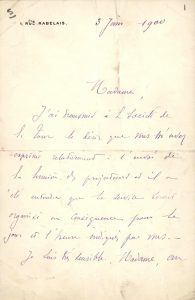 1, RUE RABELAIS.
3 Juin 1900
Madame,
J'ai transmis à la Société de
la Tour le désir que vous m'avez
exprimé relativement à l'envoi de
la lumière des projecteurs et il a
été entendu que le service serait
organisé en conséquence pour le
jour et l'heure indiqués par vous.
Je suis très sensible, Madame, au